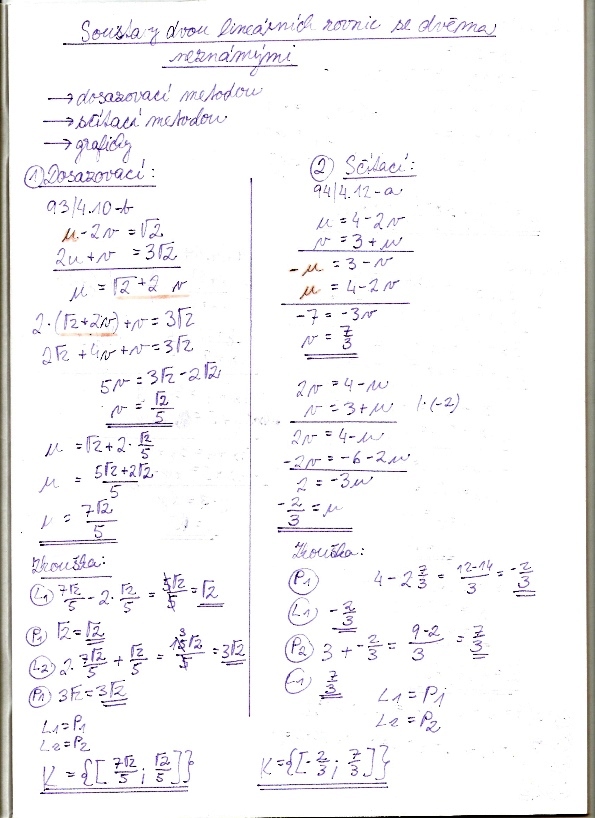 Soustavy dvou lineárních rovnic se dvěma
neznámými
→ dosazovací metodou
→ sčítací metodou
→ graficky
① Dosazovací:
93/4.10-b
u - 2v = √2
2u + v = 3√2
u = √2 + 2 v
2·(√2 + 2v) + v = 3√2
2√2 + 4v + v = 3√2
5v = 3√2 - 2√2
v = √2/5
u = √2 + 2·√2/5
u = (5√2 + 2√2)/5
u = 7√2/5
Zkouška:
L₁ 7√2/5 - 2·√2/5 = 5√2/5 = √2
P₁ √2 = √2
L₂ 2·7√2/5 + √2/5 = 15√2/5 = 3√2
P₁ 3√2 = 3√2
L₁ = P₁
L₂ = P₂
K = {[7√2/5 ; √2/5]}
② Sčítací:
94/4.12-a
u = 4 - 2v
v = 3 + u
-u = 3 - v
u = 4 - 2v
-7 = -3v
v = 7/3
2v = 4 - u
v = 3 + u /·(-2)
2v = 4 - u
-2v = -6 - 2u
2 = -3u
-2/3 = u
Zkouška:
P₁ 4 - 2 7/3 = (12-14)/3 = -2/3
L₁ -2/3
P₂ 3 + -2/3 = (9-2)/3 = 7/3
L₁ 7/3
L₁ = P₁
L₂ = P₂
K = {[-2/3 ; 7/3]}